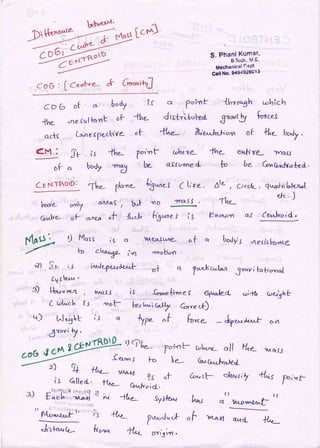 Difference between.
COG, Centre of Mass [CM]
CENTROID
S. Phani Kumar,
B.Tech., M.E.
Mechanical Dept
Cell No. 9494928013
COG: [Centre of Gravity]
COG of a body is a point through which
the resultant of the distributed gravity forces
acts irrespective of the orientation of the body.
CM: It is the point where the entire mass
of a body may be assumed to be concentrated.
CENTROID: The plane figures (like. Δle, circle, quadrilateral
etc.)
have only areas, but no mass. The
centre of area of such figures is known as Centroid.
Mass: 1) Mass is a measure of a body's resistance
to change in motion.
2) It is independent of a particular gravitational
system.
3) However, mass is sometimes equaled with weight
(which is not technically correct)
4) Weight is a type of force - dependent on
gravity.
COG & CM & CENTROID 1) The point where all the mass
seems to be concentrated.
2) If the mass is of const density this point
is called the centroid.
3) Each mass in the system has a "moment"
"Moment" is the product of mass and the
distance from the origin.